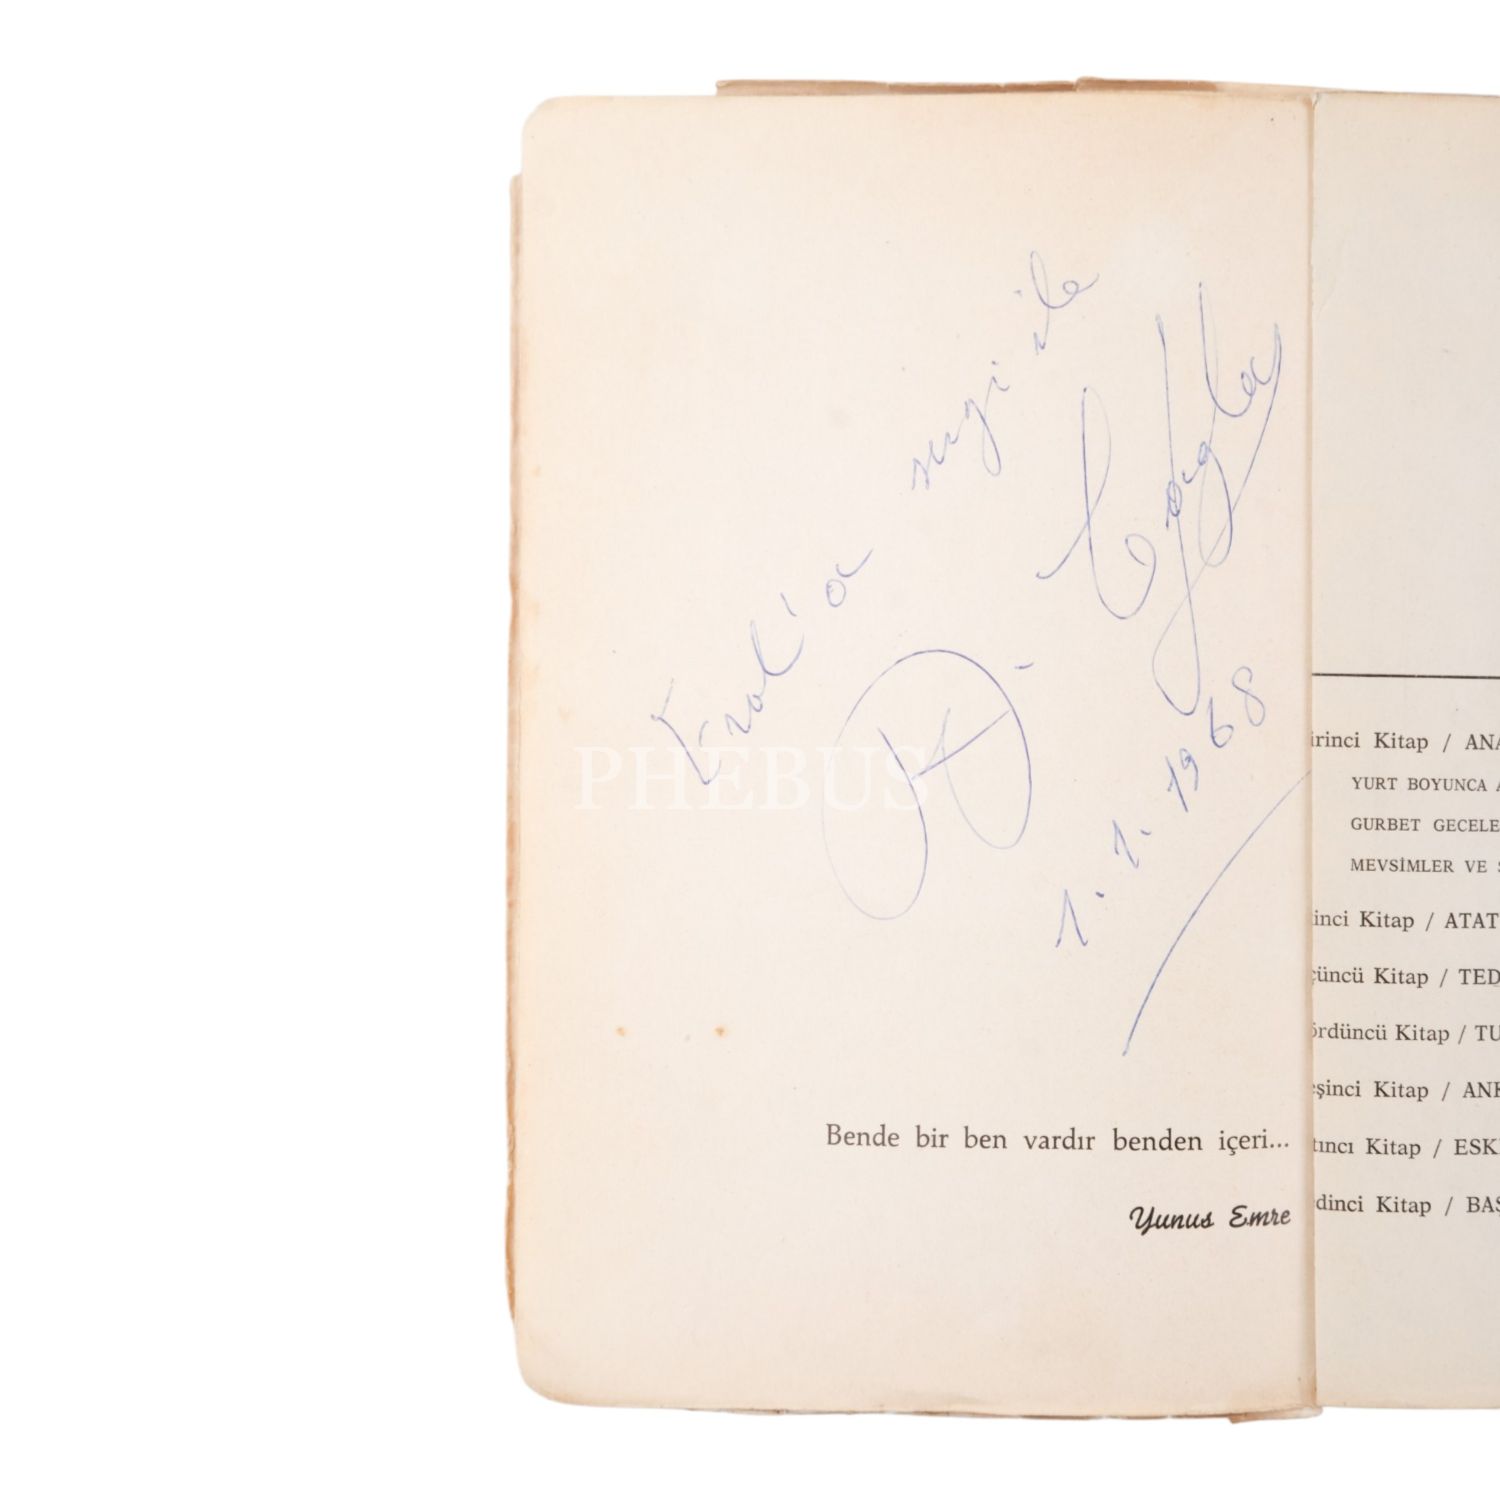 Erol'a sevgi ile
A. Çağla
1.1.1968
PHEBUS
Bende bir ben vardır benden içeri...
Yunus Emre
irinci Kitap / ANA
YURT BOYUNCA A
GURBET GECELE
MEVSİMLER VE S
inci Kitap / ATAT
çüncü Kitap / TED
ördüncü Kitap / TU
eşinci Kitap / ANK
tıncı Kitap / ESKİ
dinci Kitap / BAS